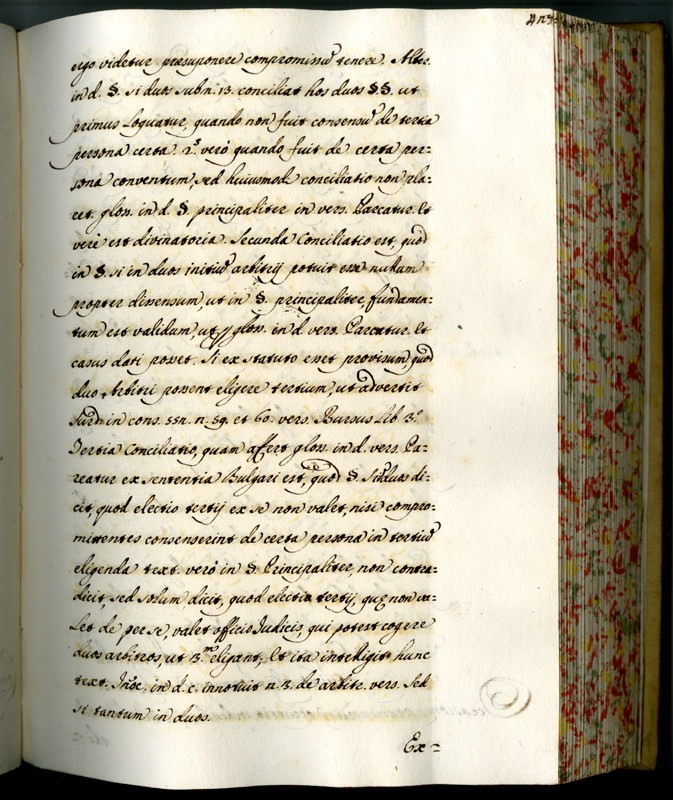 ergo videtur præsuponere compromissũ tenere. Alter.
in d. §. si duos sub n. 13. conciliat hos duos §§. ut
primus loquatur, quando non fuit consensũ de tertia
persona certa. 2.º verò quando fuit de certa per=
sona conventum, sed huiusmodi conciliatio non pla=
cet. gloss. in d. §. principaliter in vers. Parcatur. Et
verè est divinatoria. Secunda Conciliatio est, quod
in §. si in duos initiũ arbitrij potuit esse nullum
propter dissensum, ut in §. principaliter, fundamen=
tum est validum, ut gloss. in d. vers. Parcatur. Et
casus dati posset. Si ex statuto esset provisum, quod
duo Arbitri possent eligere tertium, ut advertit
Surd. in cons. 551. n. 59. et 60. vers. Rursus Lib. 3.º
Tertia Conciliatio, quam affert gloss. in d. vers. Pa=
reatur ex sententia Bulgari est, quod §. Si in duos di=
cit, quod electio tertij ex se non valet, nisi compro=
mittentes consenserint de certa persona in tertiũ
eligenda text. verò in §. Principaliter, non contra=
dicit, sed solum dicit, quod electio tertij, quæ non va=
let de per se, valet officio Judicis, qui potest cogere
duos arbitros, ut 3.m eligant; Et ita intelligit hunc
text. Inoc. in d. c. innotuit n. 3. de arbitr. vers. Sed
si tantum in duos.
Ex=